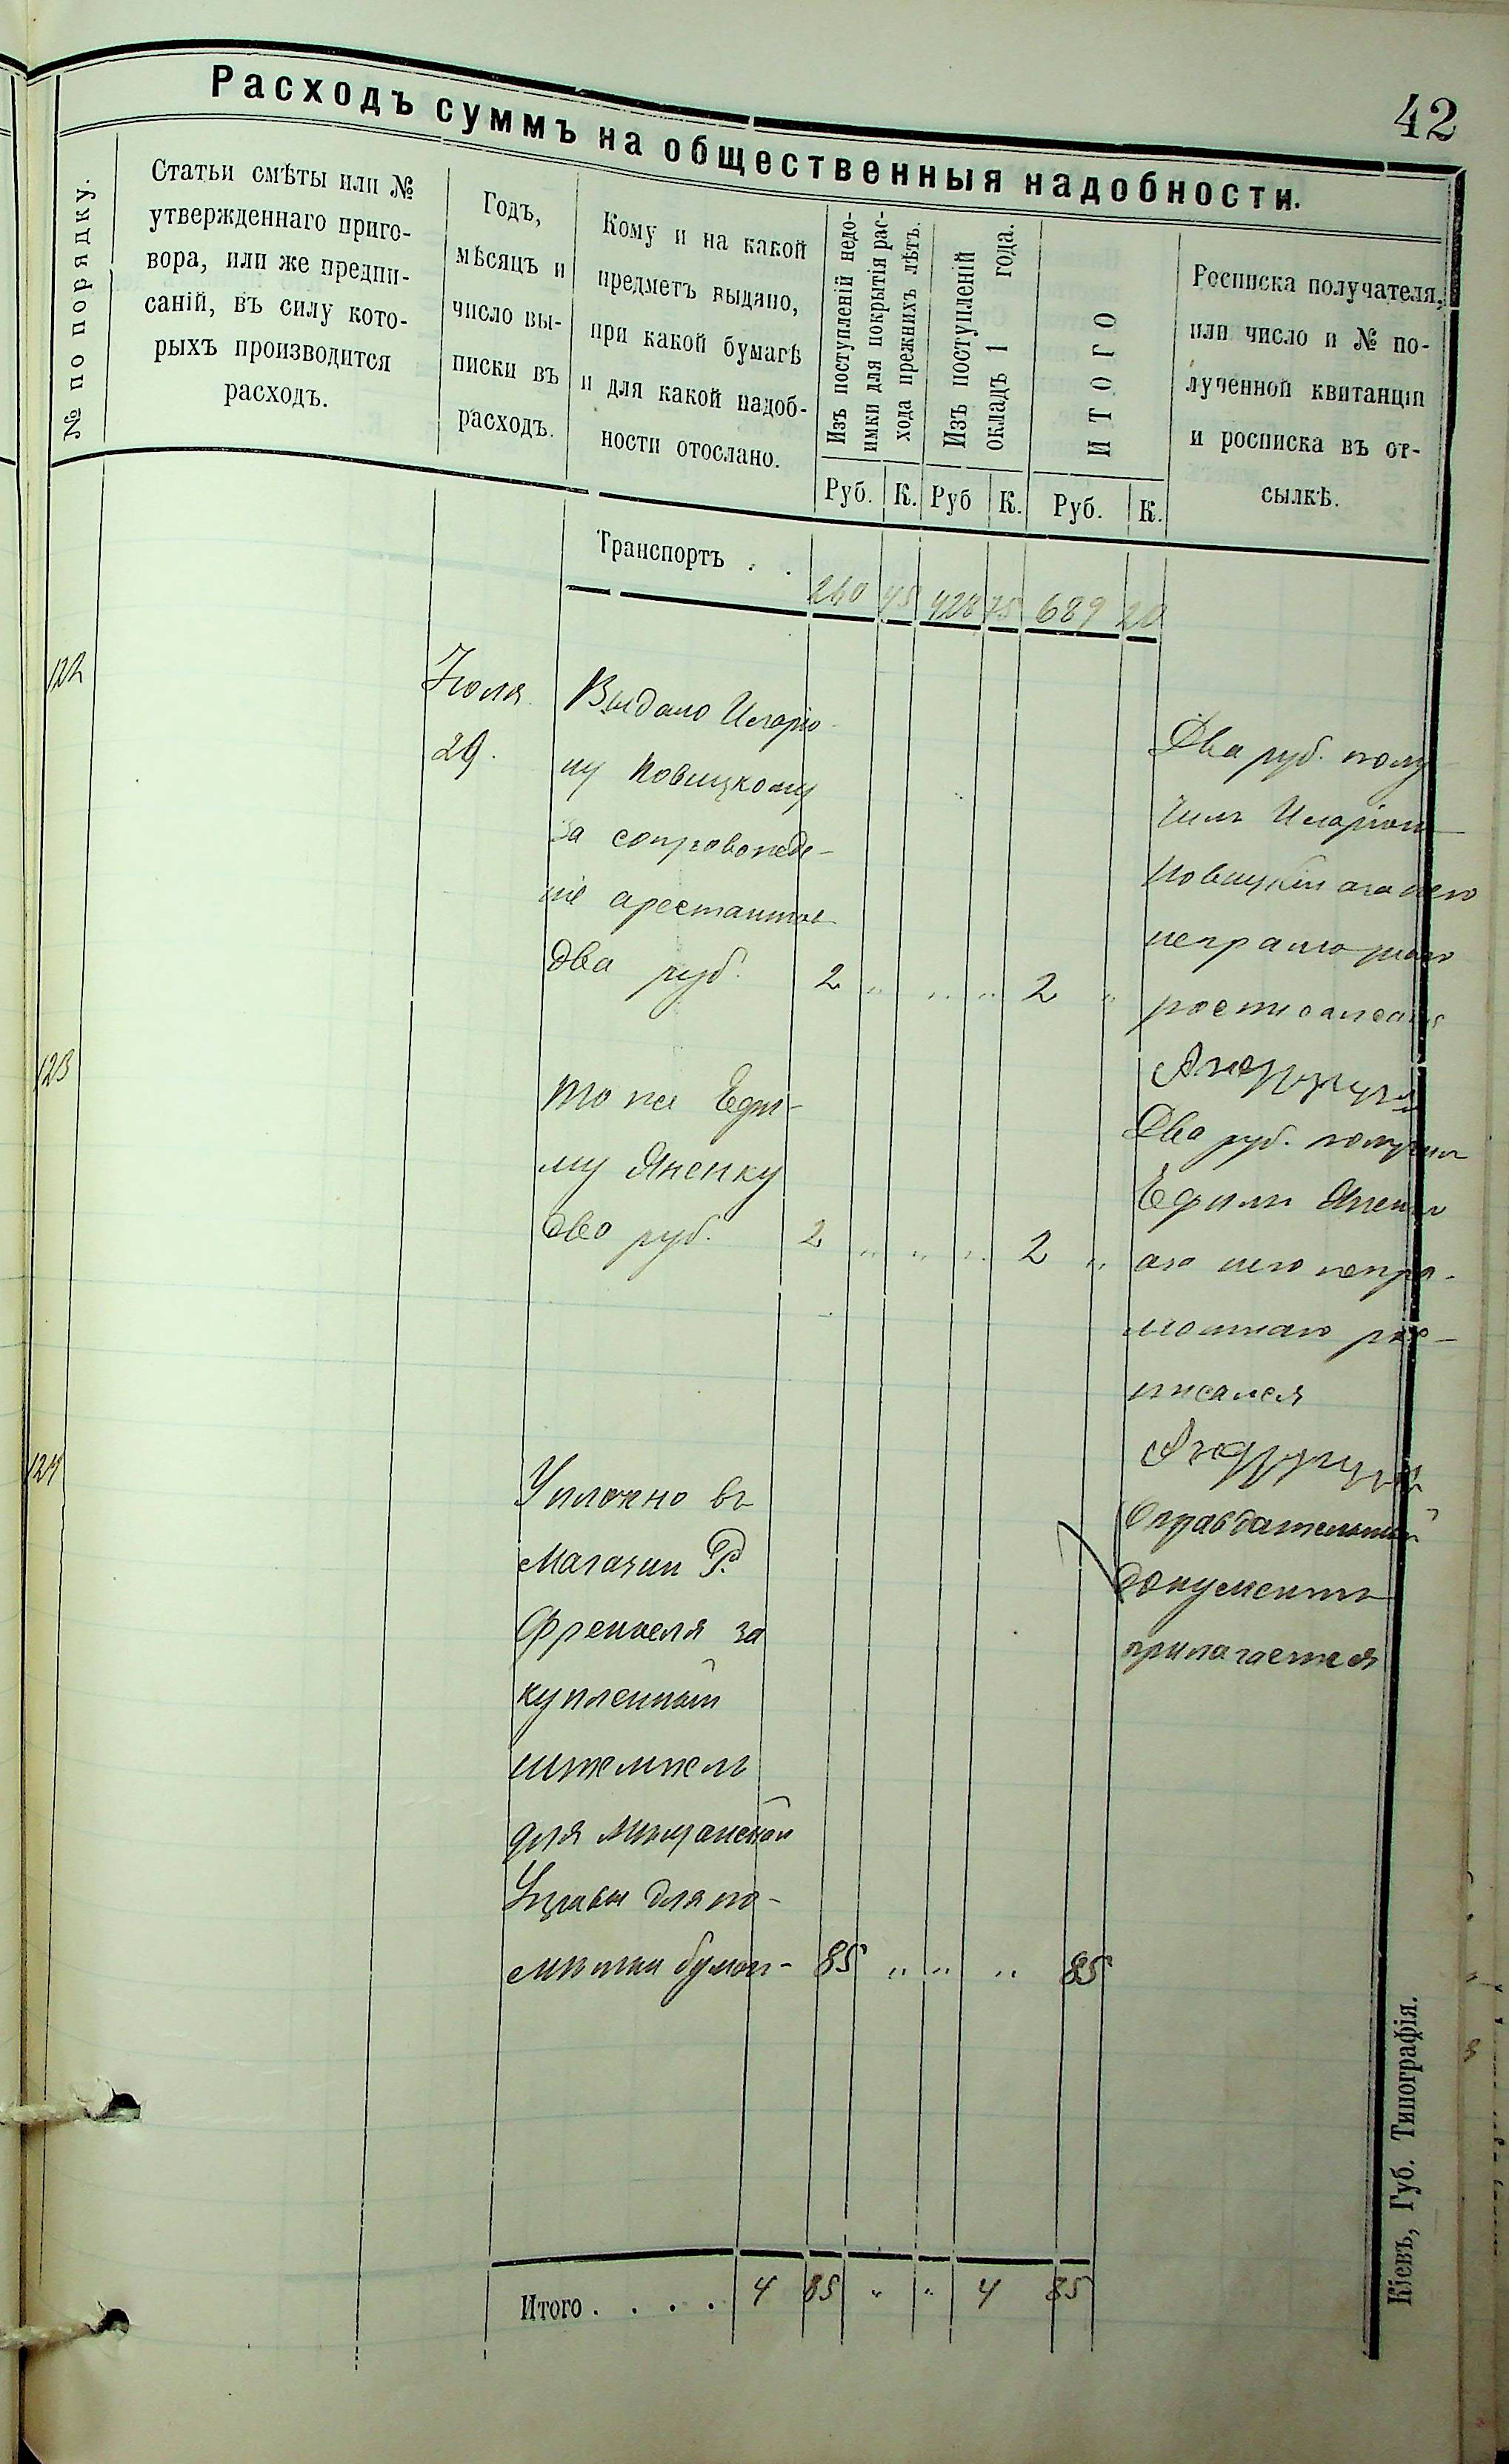 42
Расходъ суммъ на общественныя надобности.
№ по порядку.
Статьи смѣты или №
утвержденнаго приго-
вора, или же предпи-
саній, въ силу кото-
рыхъ производится
расходъ.
Годъ,
мѣсяцъ и
число вы-
писки въ
расходъ.
Кому и на какой
предметъ выдано,
при какой бумагѣ
и для какой надоб-
ности отослано.
Изъ поступленій недо-
имки для покрытія рас-
хода прежнихъ лѣтъ.
Изъ поступленій
окладъ 1 года.
ИТОГО
Росписка получателя,
или число и № по-
лученной квитанціи
и росписка въ от-
сылкѣ.
Руб. К. Руб К. Руб. К.
Транспортъ . . 260 45 428 75 689 20
122
Іюля
29.
Выдано Иларіо-
ну Новицкому
за сопровожде-
ніе арестантов
два руб. 2 " " " 2 "
Два руб. полу
чилъ Иларіон
Новицкій а за него
неграмотнаго
росписался
123
то же Ефи-
му Яненку
два руб. 2 " " " 2 "
Два руб. получил
Ефимъ Яненко
а за него негра-
мотнаго рос-
писался
124
Уплочно въ
магазин Р.
Френкеля за
купленный
штемпель
для Мѣщанской
Управы для по-
мѣтки бумаг- 85 " " " 85
Оправдательный
документъ
прилагается
Итого . . . . 4 85 " " 4 85
Кіевъ, Губ. Типографія.